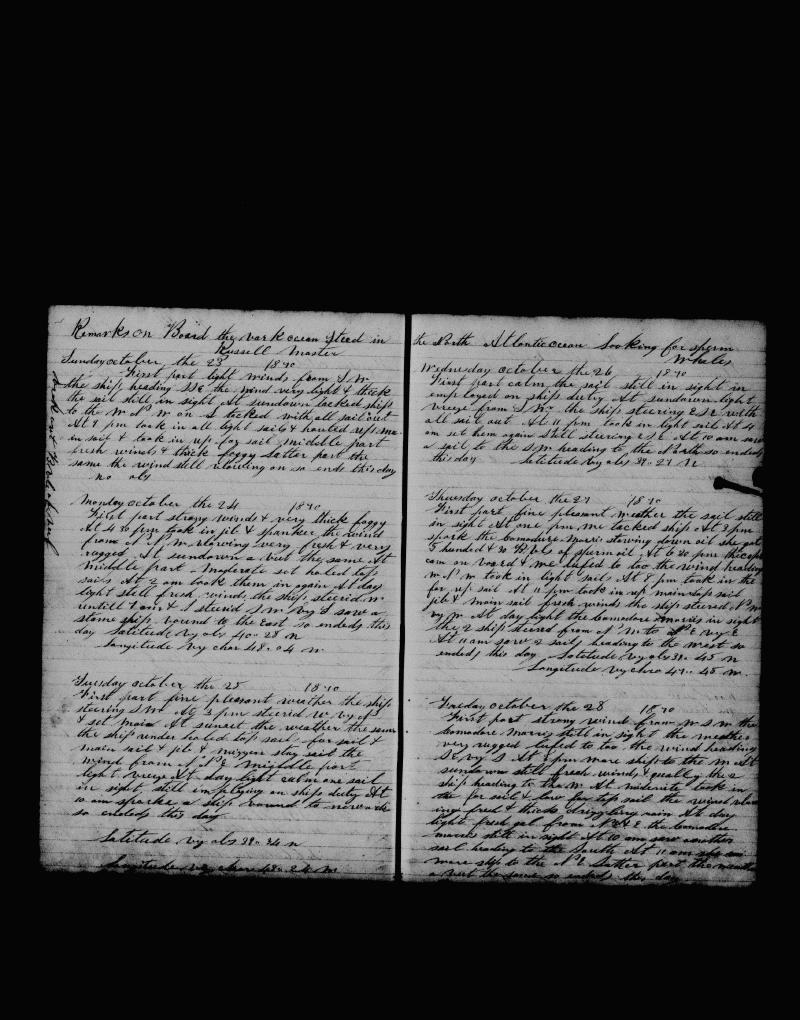 Remarks on Board the bark ocean Steed in
Russell Master
Sunday october the 23 1870
First part light winds from S W
the ship heading SSE the wind very light & thick
the sail still in sight At sundown tacked ship
to the W N W on S tacked with all sail out
At 9 pm took in all light sails & hauled up ma
in sail & took in up for sail middle part
fresh winds & thick foggy Latter part the
same the wind still blowing on so ends this day
no obs
Monday october the 24 1870
First part strong winds & very thick foggy
At 4 30 pm took in jib & spanker the wind
from N W blowing very fresh & very
rugged At sundown a bout the same At
middle part Moderate set haled top
sails At 2 am took them in again At day
light still fresh winds the ship steerd W
untill 7 am & I steerd S W by S saw a
stame ship bound to the East so endeds this
day Latitude by obs 40.. 28 N
Longitude by chor 48.. 04 W
Tuesday october the 25 1870
First part fine plesant weather the ship
steering S W At 2 pm steerid W by S
& set main At sunset the weather the same
the ship under haled top sail for sail &
main sail & jib & mizzen stay sail the
wind from N N E middle part
light breze At day light calm one sail
in sight still imploying on ships duty At
10 am sparke a ship bound to
so endeds this day
Latitude by obs 39.. 34 N
Longitude by chor 48.. 24 W
the North Atlantic ocean Looking for sperm
Whales
Wednesday october the 26 1870
First part calm the sail still in sight in
employed on ships duty At sundown light
breeze from S W the ship steering E S E with
all sail out At 11 pm took in light sail At 4
am set them again Still steering E S E At 10 am saw
a sail to the S W heading to the North so ended
this day Latitude by obs 39.. 27 N
Thursday october the 27 1870
First part fine plesant weather the sail still
in sight At one pm we tacked ship At 3 pm
spark the Comodore Morris stowing down oil she got
5 hunded & 30 Bbls of sperm oil At 6 30 pm the capt
cam on board & we lufed to too the wind heading
W N W took in light sails At 8 pm took in the
for up sail At 11 pm took in up main top sail
jib & main sail fresh winds the ship steered N W
by W At day light the Comodore Morris in sight
the 2 ship steerd from N W to N E by E
At 11 am sarw 2 sails heading to the west so
ended, this day Latitude by obs 39.. 45 N
Longitude by chro 47.. 45 W.
Friday october the 28 1870
First part strong wind from W S W the
Comodore Morris still in sight the weather
very rugged lufed to too the wind heading
S E by S At 7 pm wore ship to the W At
sundown still fresh winds & qually the 2
ship heading to the W At midenite took in
the for sail & low for top sail the wind blow
ing fred & thick drizzling rain At day
light fresh gal from N N E the Comodore
Morris still in sight At 10 am saw another
sail heading to the South At 11 am
wore ship to the N E Latter part the weather
a bout the same so endeds this day